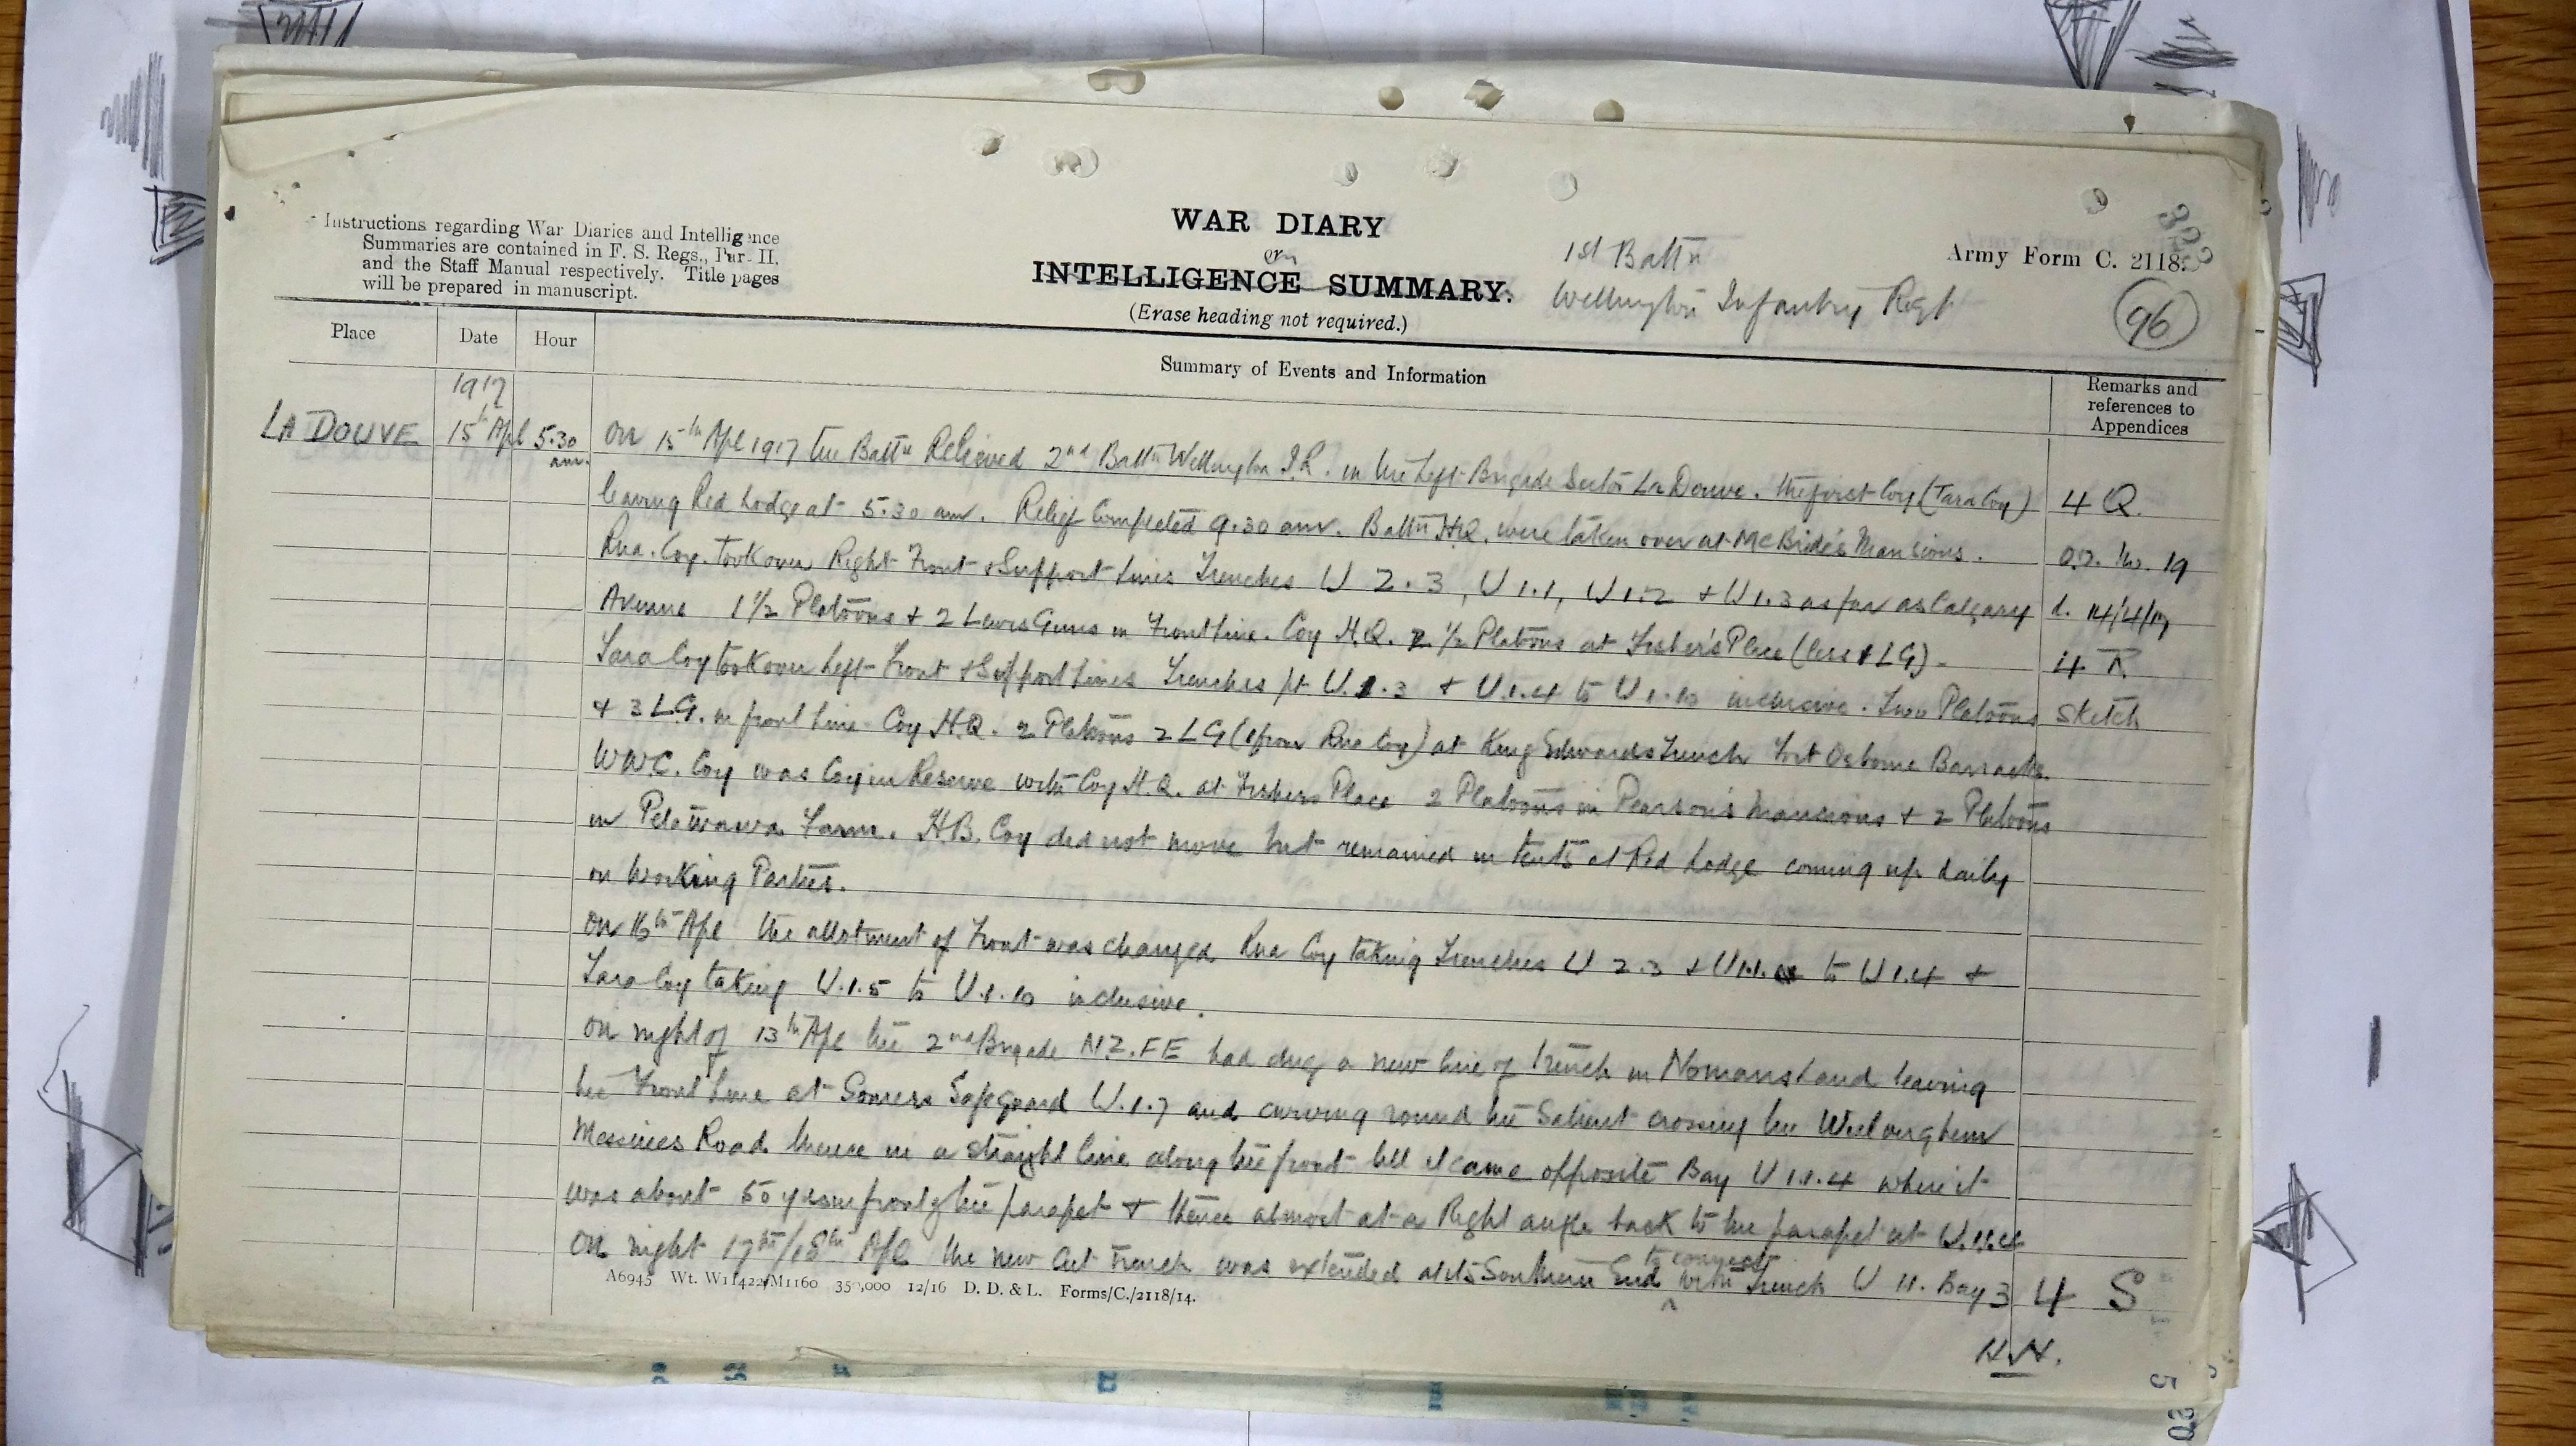 Instructions regarding War Diaries and Intelligence
Summaries are contained in F. S. Regs., Part II.
and the Staff Manual respectively. Title pages
will be prepared in manuscript.
WAR DIARY
or
INTELLIGENCE SUMMARY.
(Erase heading not required.)
1st Battn
Wellington Infantry Regt
Army Form C. 2118.
96
Place
Date
Hour
Summary of Events and Information
Remarks and
references to
Appendices
1917
LA DOUVE 15th Apl 5.30 am.
On 15th Apl 1917 the Battn Relieved 2nd Battn Wellington I.R. in the Left Brigade Sector La Douve. The first Coy (Tara Coy) 4 Q.
leaving Red Lodge at 5.30 am. Relief Completed 9.30 am. Battn H.Q. were taken over at McBride's Mansions. O.O. No. 19
Rua. Coy. took over Right Front & Support Lines Trenches U 2.3, U 1.1, U 1.2 & U 1.3 as far as Calgary d. 14/4/17
Avenue 1½ Platoons & 2 Lewis Guns in Front line. Coy H.Q. 2½ Platoons at Fisher's Place (less 1 LG). 4 R
Tara Coy took over Left Front & Support lines Trenches pt U.1.3 & U.1.4 to U 1.10 inclusive. Two Platoons Sketch
& 3 LG. in front line Coy H.Q. 2 Platoons 2 LG (1 from Rua Coy) at King Edwards Trench Fort Osborne Barracks.
WWC. Coy was Coy in Reserve with Coy H.Q. at Fishers Place 2 Platoons in Pearson's Mansions & 2 Platoons
in Petawawa Farm. H.B. Coy did not move but remained in tents at Red Lodge coming up daily
on Working Parties.
On 16th Apl the allotment of Front was changed Rua Coy taking Trenches U 2.3 & U 1.1 to U 1.4 &
Tara Coy taking U.1.5 to U.1.10 inclusive.
On night of 13th Apl the 2nd Brigade NZ.FE had dug a new line of trench in Nomansland leaving
the Front Line at Somers Safeguard U.1.7 and curving round the Salient crossing the Wulverghem
Messines Road thence in a straight line along the front till it came opposite Bay U 1.1.4 where it
was about 50 yds in front of the parapet & thence almost at a Right angle back to the parapet at U.1.1.4
On night 17th/18th Apl the new Cut trench was extended at its Southern End to connect with Trench U 1.1. Bay 3 4 S
A6945 Wt. W11422/M1160 350,000 12/16 D. D. & L. Forms/C./2118/14.